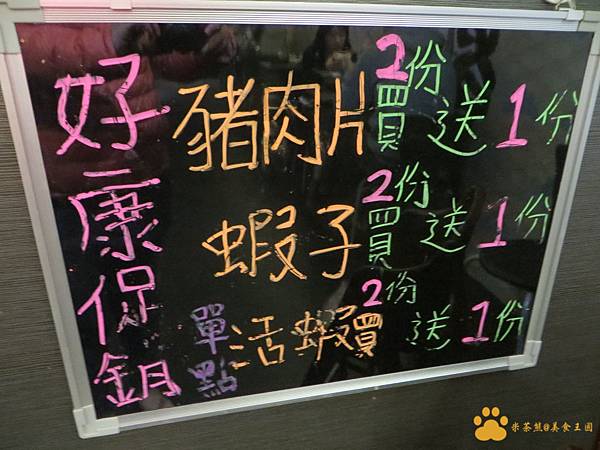 好康促銷
豬肉片買2份送1份
蝦子買2份送1份
單點活蝦買2份送1份
米茶熊@美食王國